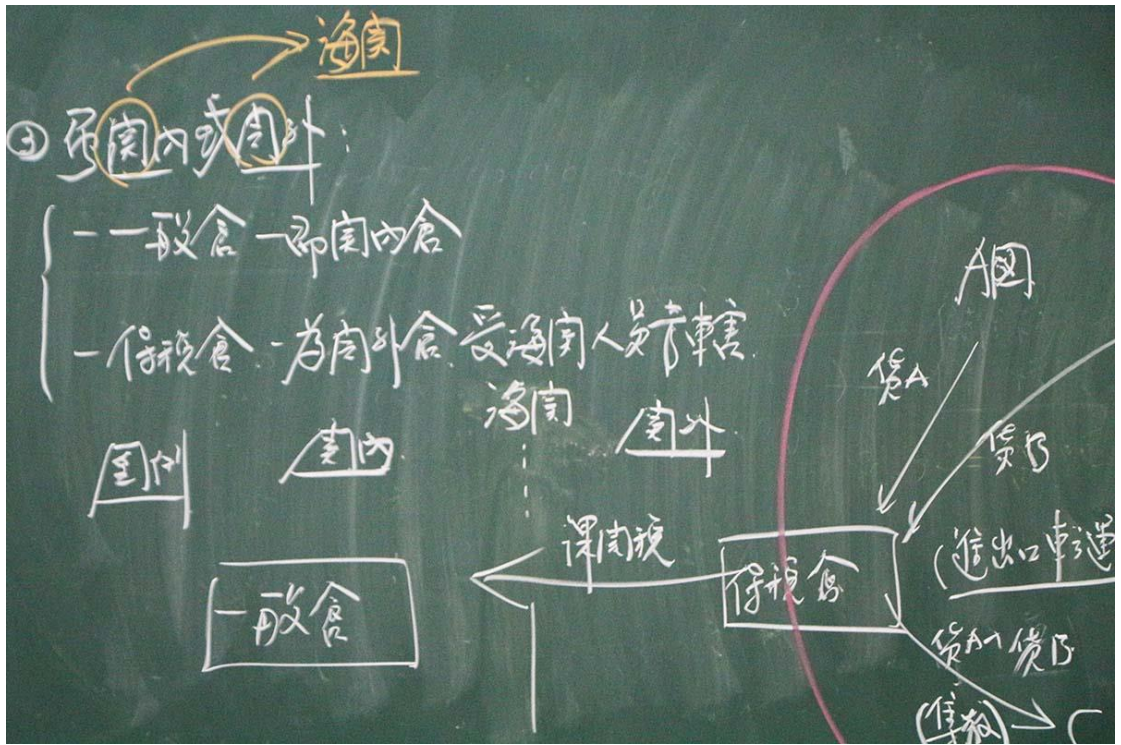 海関
③ 屬関內或関外:
- 一般倉 - 即関內倉
- 保税倉 - 為関外倉 受海関人員管轄
海関
国內 関內 関外
一般倉 課関稅 保税倉
A国
貨A
貨B
(進出口轉運
貨A 貨B
C